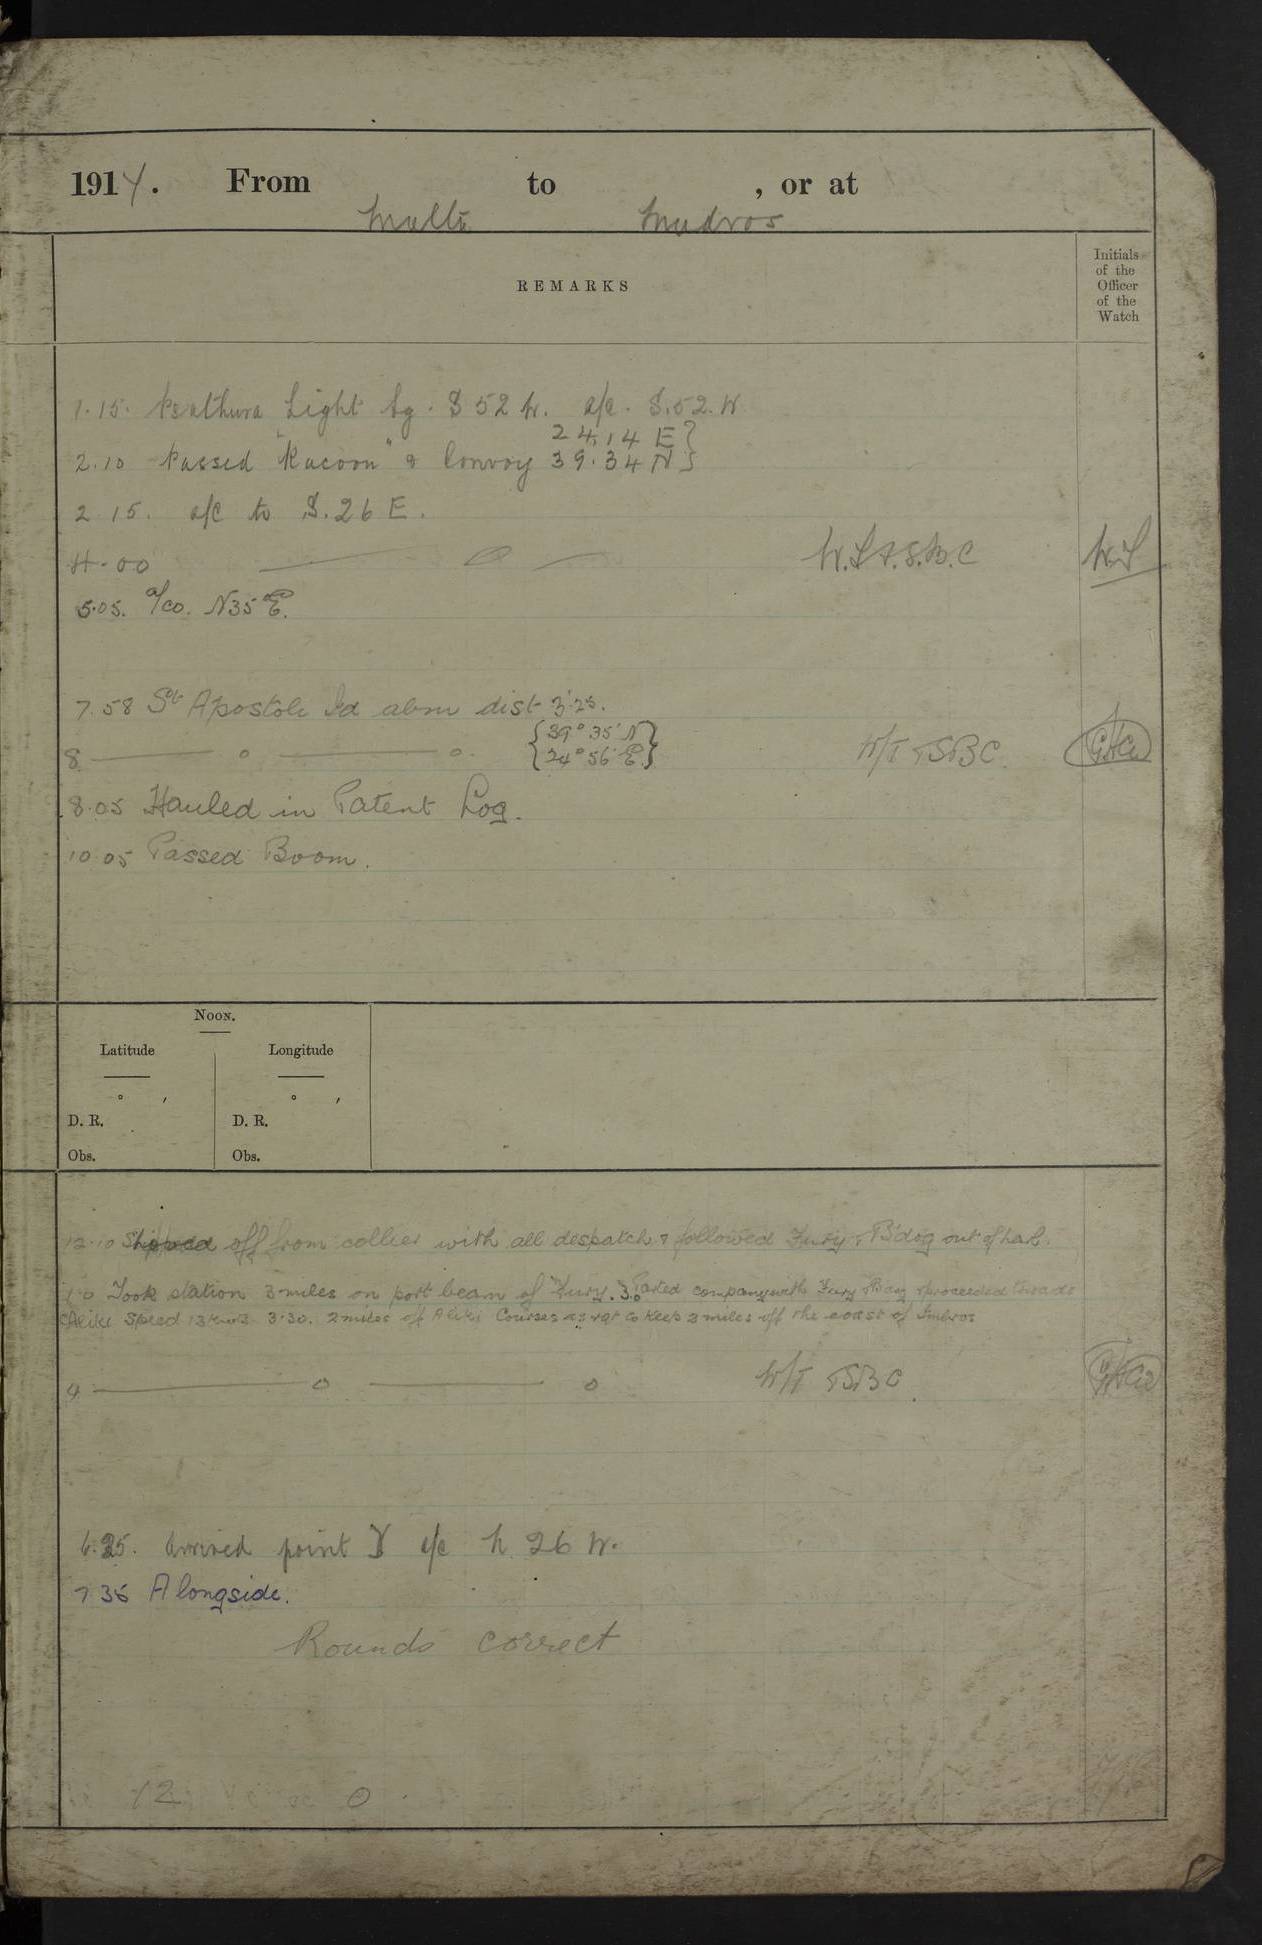 1914. From Malta to Mudros , or at
REMARKS
Initials
of the
Officer
of the
Watch
1.15. Psathura Light bg. S 52 W. a/c. S.52.W
24.14 E}
2.10 Passed "Racoon" & Convoy 39.34 N}
2.15. a/c to S.26 E.
4.00 — o — W.L & S.B.C
5.05. a/co. N35°E.
7.58 St Apostole Id abm dist 3'.25.
{39° 35' N}
8 — o — o. {24° 56' E.} W/T & SBC.
8.05 Hauled in Patent Log.
10.05 Passed Boom.
NOON.
Latitude Longitude
° ′ ° ′
D. R. D. R.
Obs. Obs.
12.10 Shoved off from collier with all despatch & followed Fury & B'dog out of har.
1.0 Took station 3 miles on port beam of "Fury". 3.0 Parted company with Fury & proceeded towards
Aliki Speed 13 knots 3.30. 2 miles off Aliki Courses as reqt to keep 2 miles off the coast of Imbros
4 — o — o W/T & SBC.
6.25. Arrived point Y a/c N 26 W.
7.35 Alongside.
Rounds correct
12 o